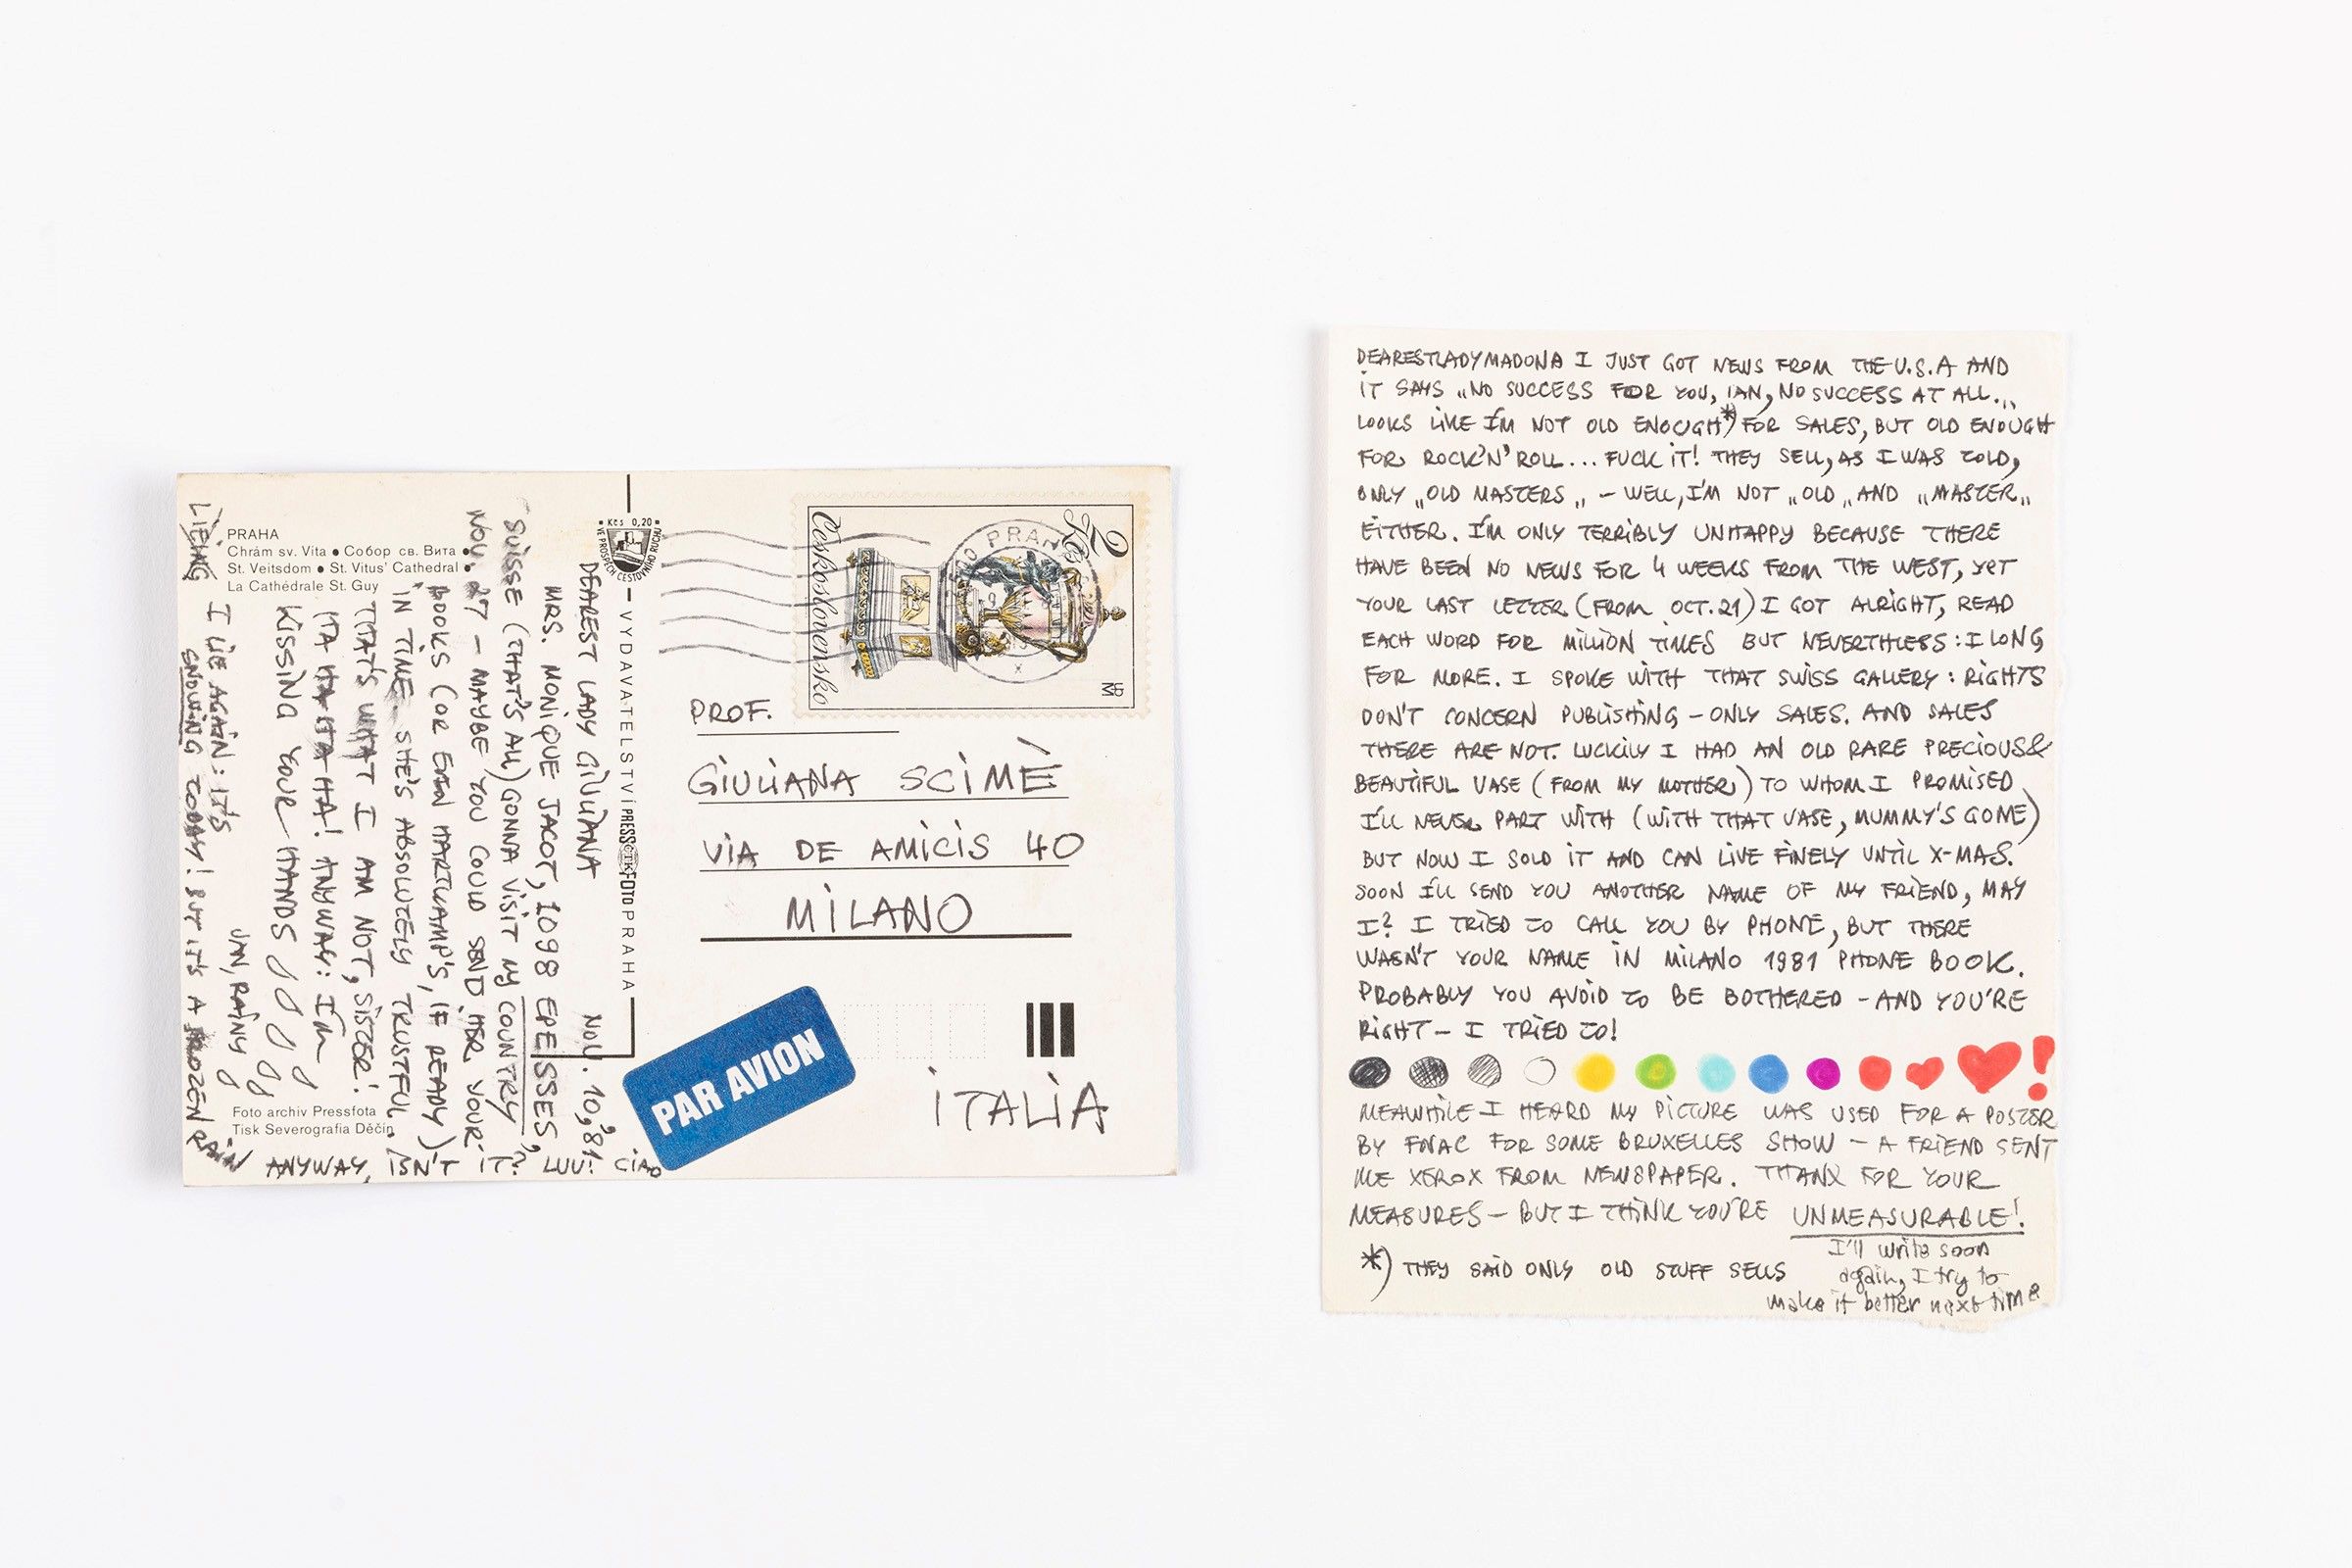 PRAHA
Chrám sv. Víta • Собор св. Вита •
St. Veitsdom • St. Vitus' Cathedral •
La Cathédrale St. Guy
DEAREST LADY GIULIANA NOV. 10, 81
MRS. MONIQUE JACOT, 1098 EPESSES,
SUISSE (THAT'S ALL) GONNA VISIT MY COUNTRY
NOV 27 – MAYBE YOU COULD SEND HER YOUR
BOOKS (OR EVEN HARTKAMP'S, IF READY)
IN TIME. SHE'S ABSOLUTELY TRUSTFUL.
THAT'S WHAT I AM NOT, SISTER!
HA HA HA HA HA! ANYWAY: I'M
KISSING YOUR HANDS
JAN, RAINY
I LIE AGAIN: IT'S
SNOWING TODAY! BUT IT'S A FROZEN RAIN
ANYWAY, ISN'T IT? LUV! CIAO
LIEING
Foto archiv Pressfota
Tisk Severografia Děčín
Kčs 0,20
VE PROSPĚCH CESTOVNÍHO RUCHU
VYDAVATELSTVÍ PRESSFOTO PRAHA
ČTK
Československo
2 Kčs
PRAHA
PROF.
GIULIANA SCIMÈ
VIA DE AMICIS 40
MILANO
PAR AVION
ITALIA
DEARESTLADYMADONA I JUST GOT NEWS FROM THE U.S.A AND
IT SAYS „NO SUCCESS FOR YOU, IAN, NO SUCCESS AT ALL...„
LOOKS LIKE I'M NOT OLD ENOUGH*) FOR SALES, BUT OLD ENOUGH
FOR ROCK'N'ROLL... FUCK IT! THEY SELL, AS I WAS TOLD,
ONLY „OLD MASTERS„ – WELL, I'M NOT „OLD„ AND „MASTER„
EITHER. I'M ONLY TERRIBLY UNHAPPY BECAUSE THERE
HAVE BEEN NO NEWS FOR 4 WEEKS FROM THE WEST, YET
YOUR LAST LETTER (FROM OCT. 21) I GOT ALRIGHT, READ
EACH WORD FOR MILLION TIMES BUT NEVERTHLESS: I LONG
FOR MORE. I SPOKE WITH THAT SWISS GALLERY: RIGHTS
DON'T CONCERN PUBLISHING – ONLY SALES. AND SALES
THERE ARE NOT. LUCKILY I HAD AN OLD RARE PRECIOUS&
BEAUTIFUL VASE (FROM MY MOTHER) TO WHOM I PROMISED
I'LL NEVER PART WITH (WITH THAT VASE, MUMMY'S GONE)
BUT NOW I SOLD IT AND CAN LIVE FINELY UNTIL X-MAS.
SOON I'LL SEND YOU ANOTHER NAME OF MY FRIEND, MAY
I? I TRIED TO CALL YOU BY PHONE, BUT THERE
WASN'T YOUR NAME IN MILANO 1981 PHONE BOOK.
PROBABLY YOU AVOID TO BE BOTHERED – AND YOU'RE
RIGHT – I TRIED TO!
MEAWHILE I HEARD MY PICTURE WAS USED FOR A POSTER
BY FNAC FOR SOME BRUXELLES SHOW – A FRIEND SENT
ME XEROX FROM NEWSPAPER. THANX FOR YOUR
MEASURES – BUT I THINK YOU'RE UNMEASURABLE!
*) THEY SAID ONLY OLD STUFF SELLS
I'll write soon
again, I try to
make it better next time